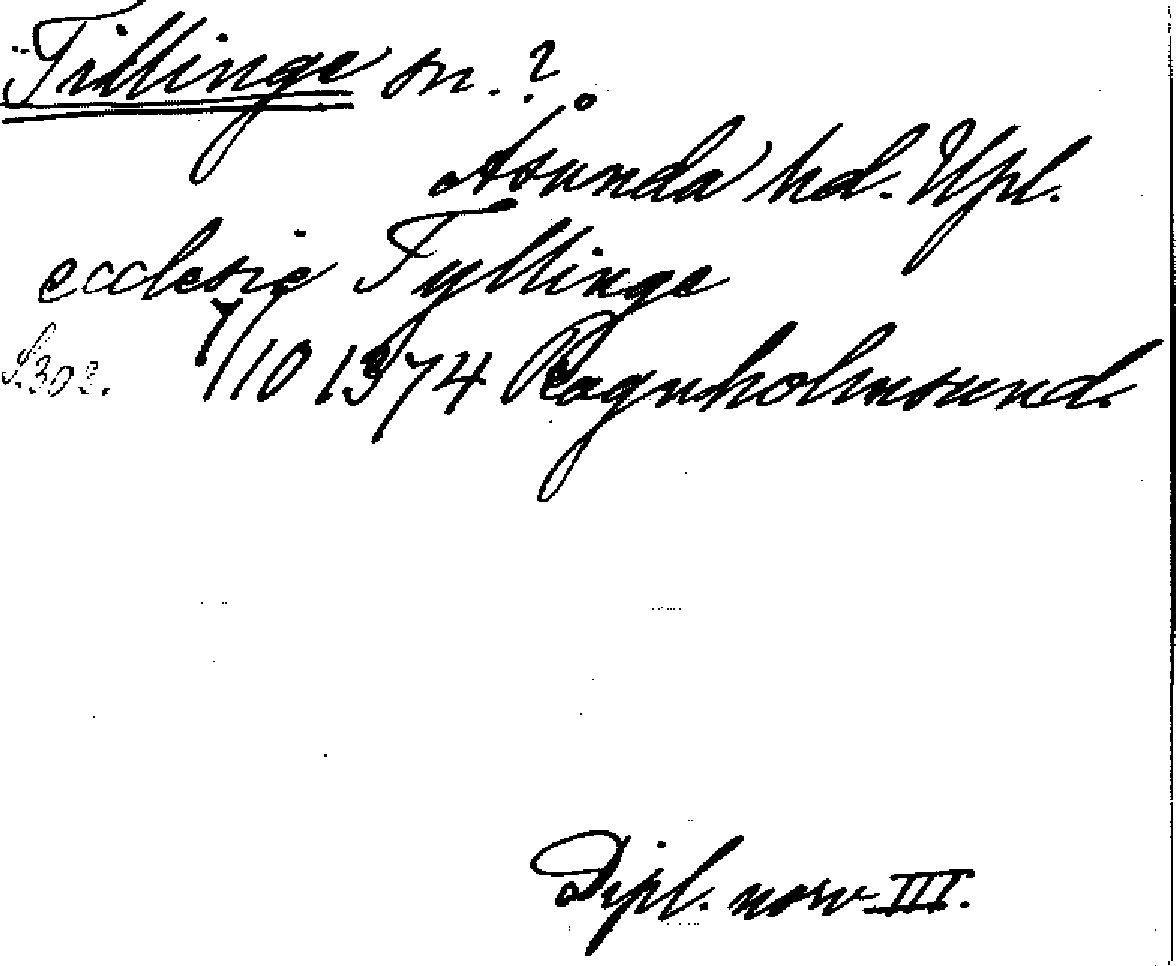 Tillinge sn. ?
Åsunda hd. Upl.
ecclesie Tyllinge
S. 302. 1/10 1374 Ragnholmsund.
Dipl. norv. III.